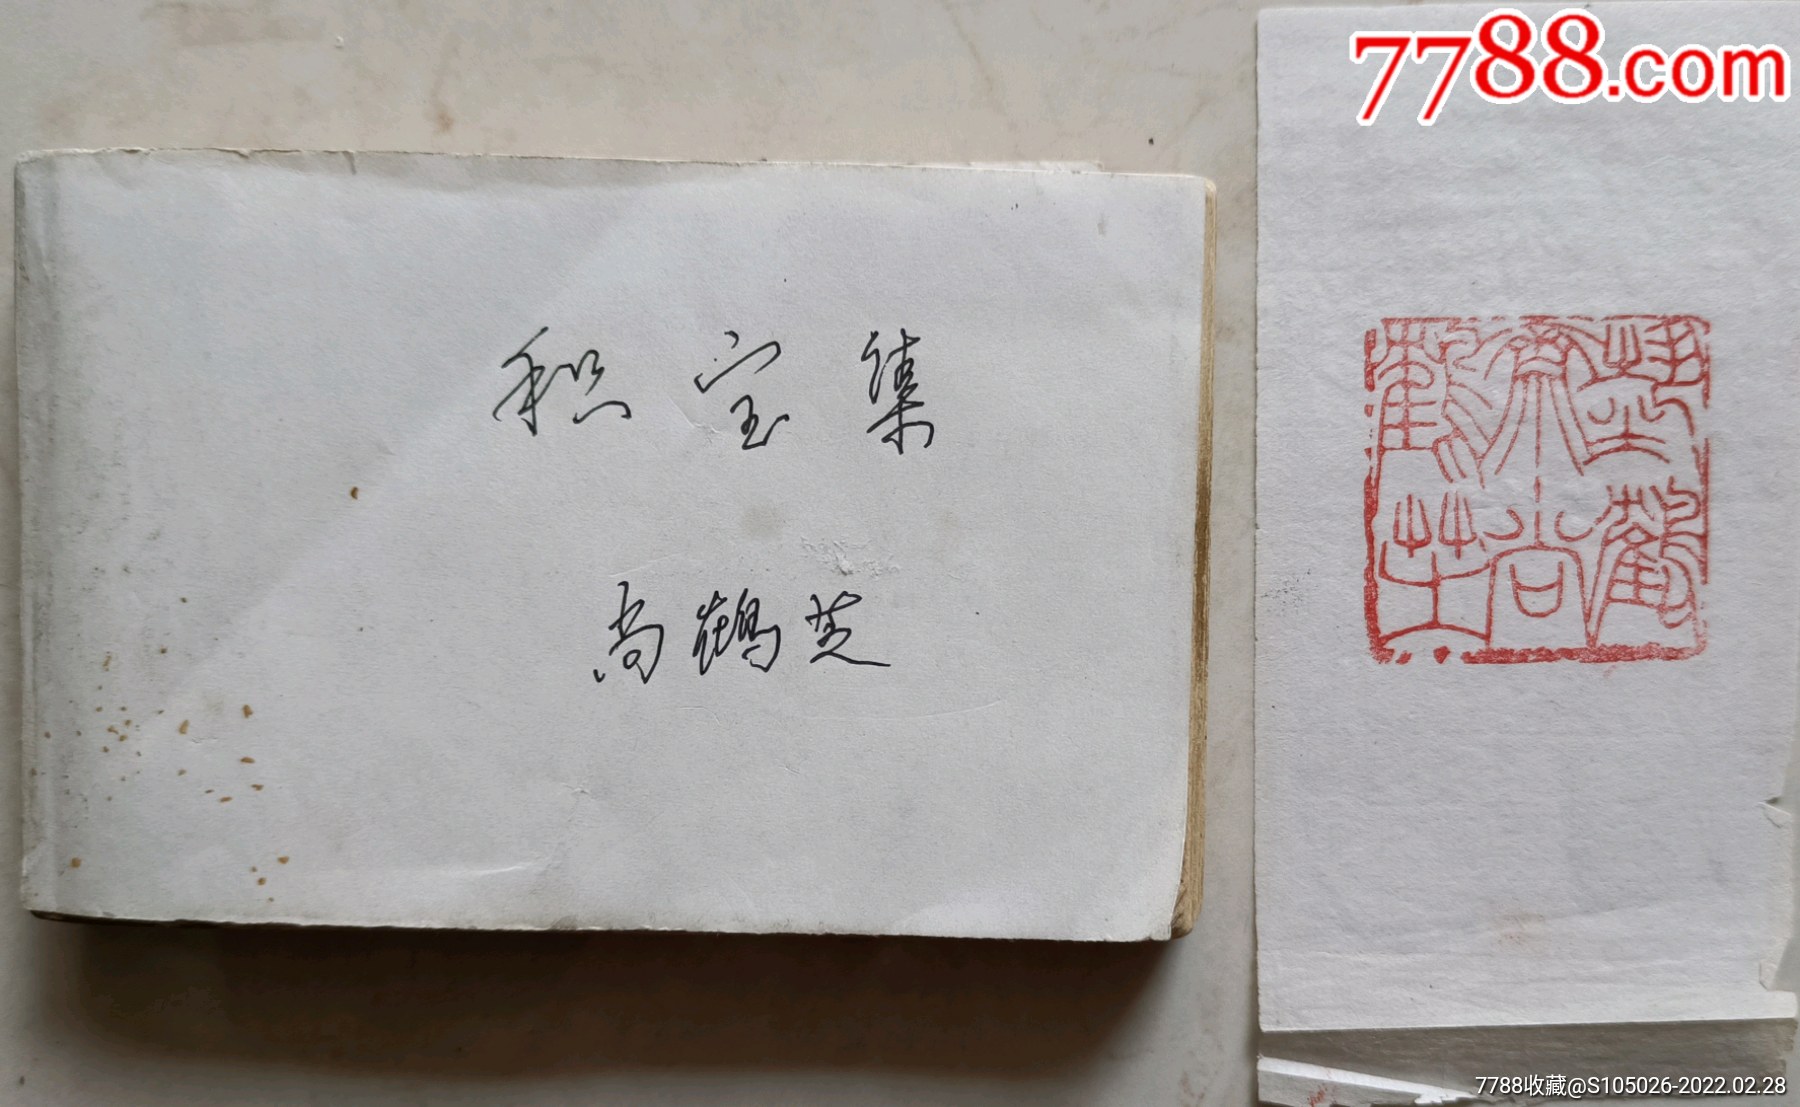 7788.com
积宝集
尚鹤芝
7788收藏@S105026-2022.02.28